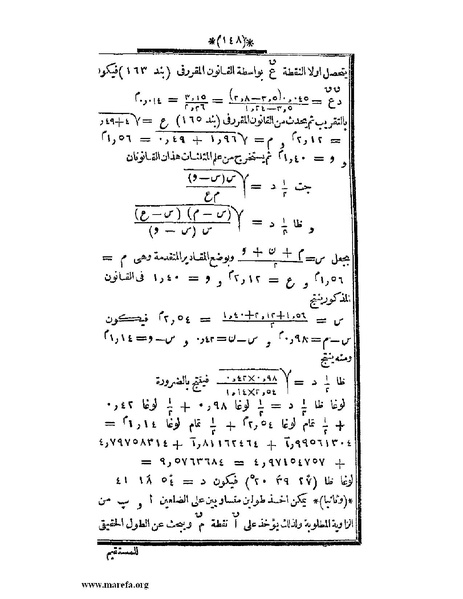 *(١٤٨)*
يتحصل اولا النقطة ع بواسطة القانون المقرر فى (بند ١٦٣) فيكون
دع = (٣,٥-٢,٨)٠,٠٤٥ / ٣,٥-١,٢٤ = ٣,١٥ / ٢,٢٦ = ٠,٠١٤
بالتقريب ثم يحدث من القانون المقرر فى (بند ١٦٥) ع = √
= ٢,١٢ و م = √١,٩٦+٠,٤٩ = ١,٥٦
و و = ١,٤٠ ثم يستخرج من علم المثلثات هذان القانونان
جت ½ د = √س(س-و) / م ع
و ظا ½ د = √(س-م) (س-ع) / س (س-و)
بجعل س = م + ن + و / ٢ وبوضع المقادير المتقدمة وهى م =
١,٥٦ و ع = ٢,١٢ و و = ١,٤٠ فى القانون
المذكور ينتج
س = ١,٥٦+٢,١٢+١,٤٠ / ٢ = ٢,٥٤ فيكون
س-م=٠,٩٨ و س-ن=٠,٤٢ و س-و=١,١٤
ومنه ينتج
ظا ½ د = √٠,٤٢×٠,٩٨ / ١,١٤×٢,٥٤ فينتج بالضرورة
لوغا ظا ½ د = ½ لوغا ٠,٩٨ + ½ لوغا ٠,٤٢
+ ½ تمام لوغا ٢,٥٤ + ½ تمام لوغا ١,١٤ =
١,٩٩٥٦١٣٠٤ + ١,٨١١٦٢٤٦٤ + ٤,٧٩٧٥٨٣١٤
+ ٤,٩٧١٥٤٧٥٧ = ٩,٥٧٦٣٦٨٤ =
لوغا ظا (٢٧ ٣٩ ٢٠) فيكون د = ٥٤ ١٨ ٤١
*(وثانيا)* يمكن اخذ طولين متساويين على الضلعين ا و ب من
الزاوية المطلوبة ولذلك يؤخذ على آ نقطة م ويبحث عن الطول الحقيقى
للمستقيم
www.marefa.org